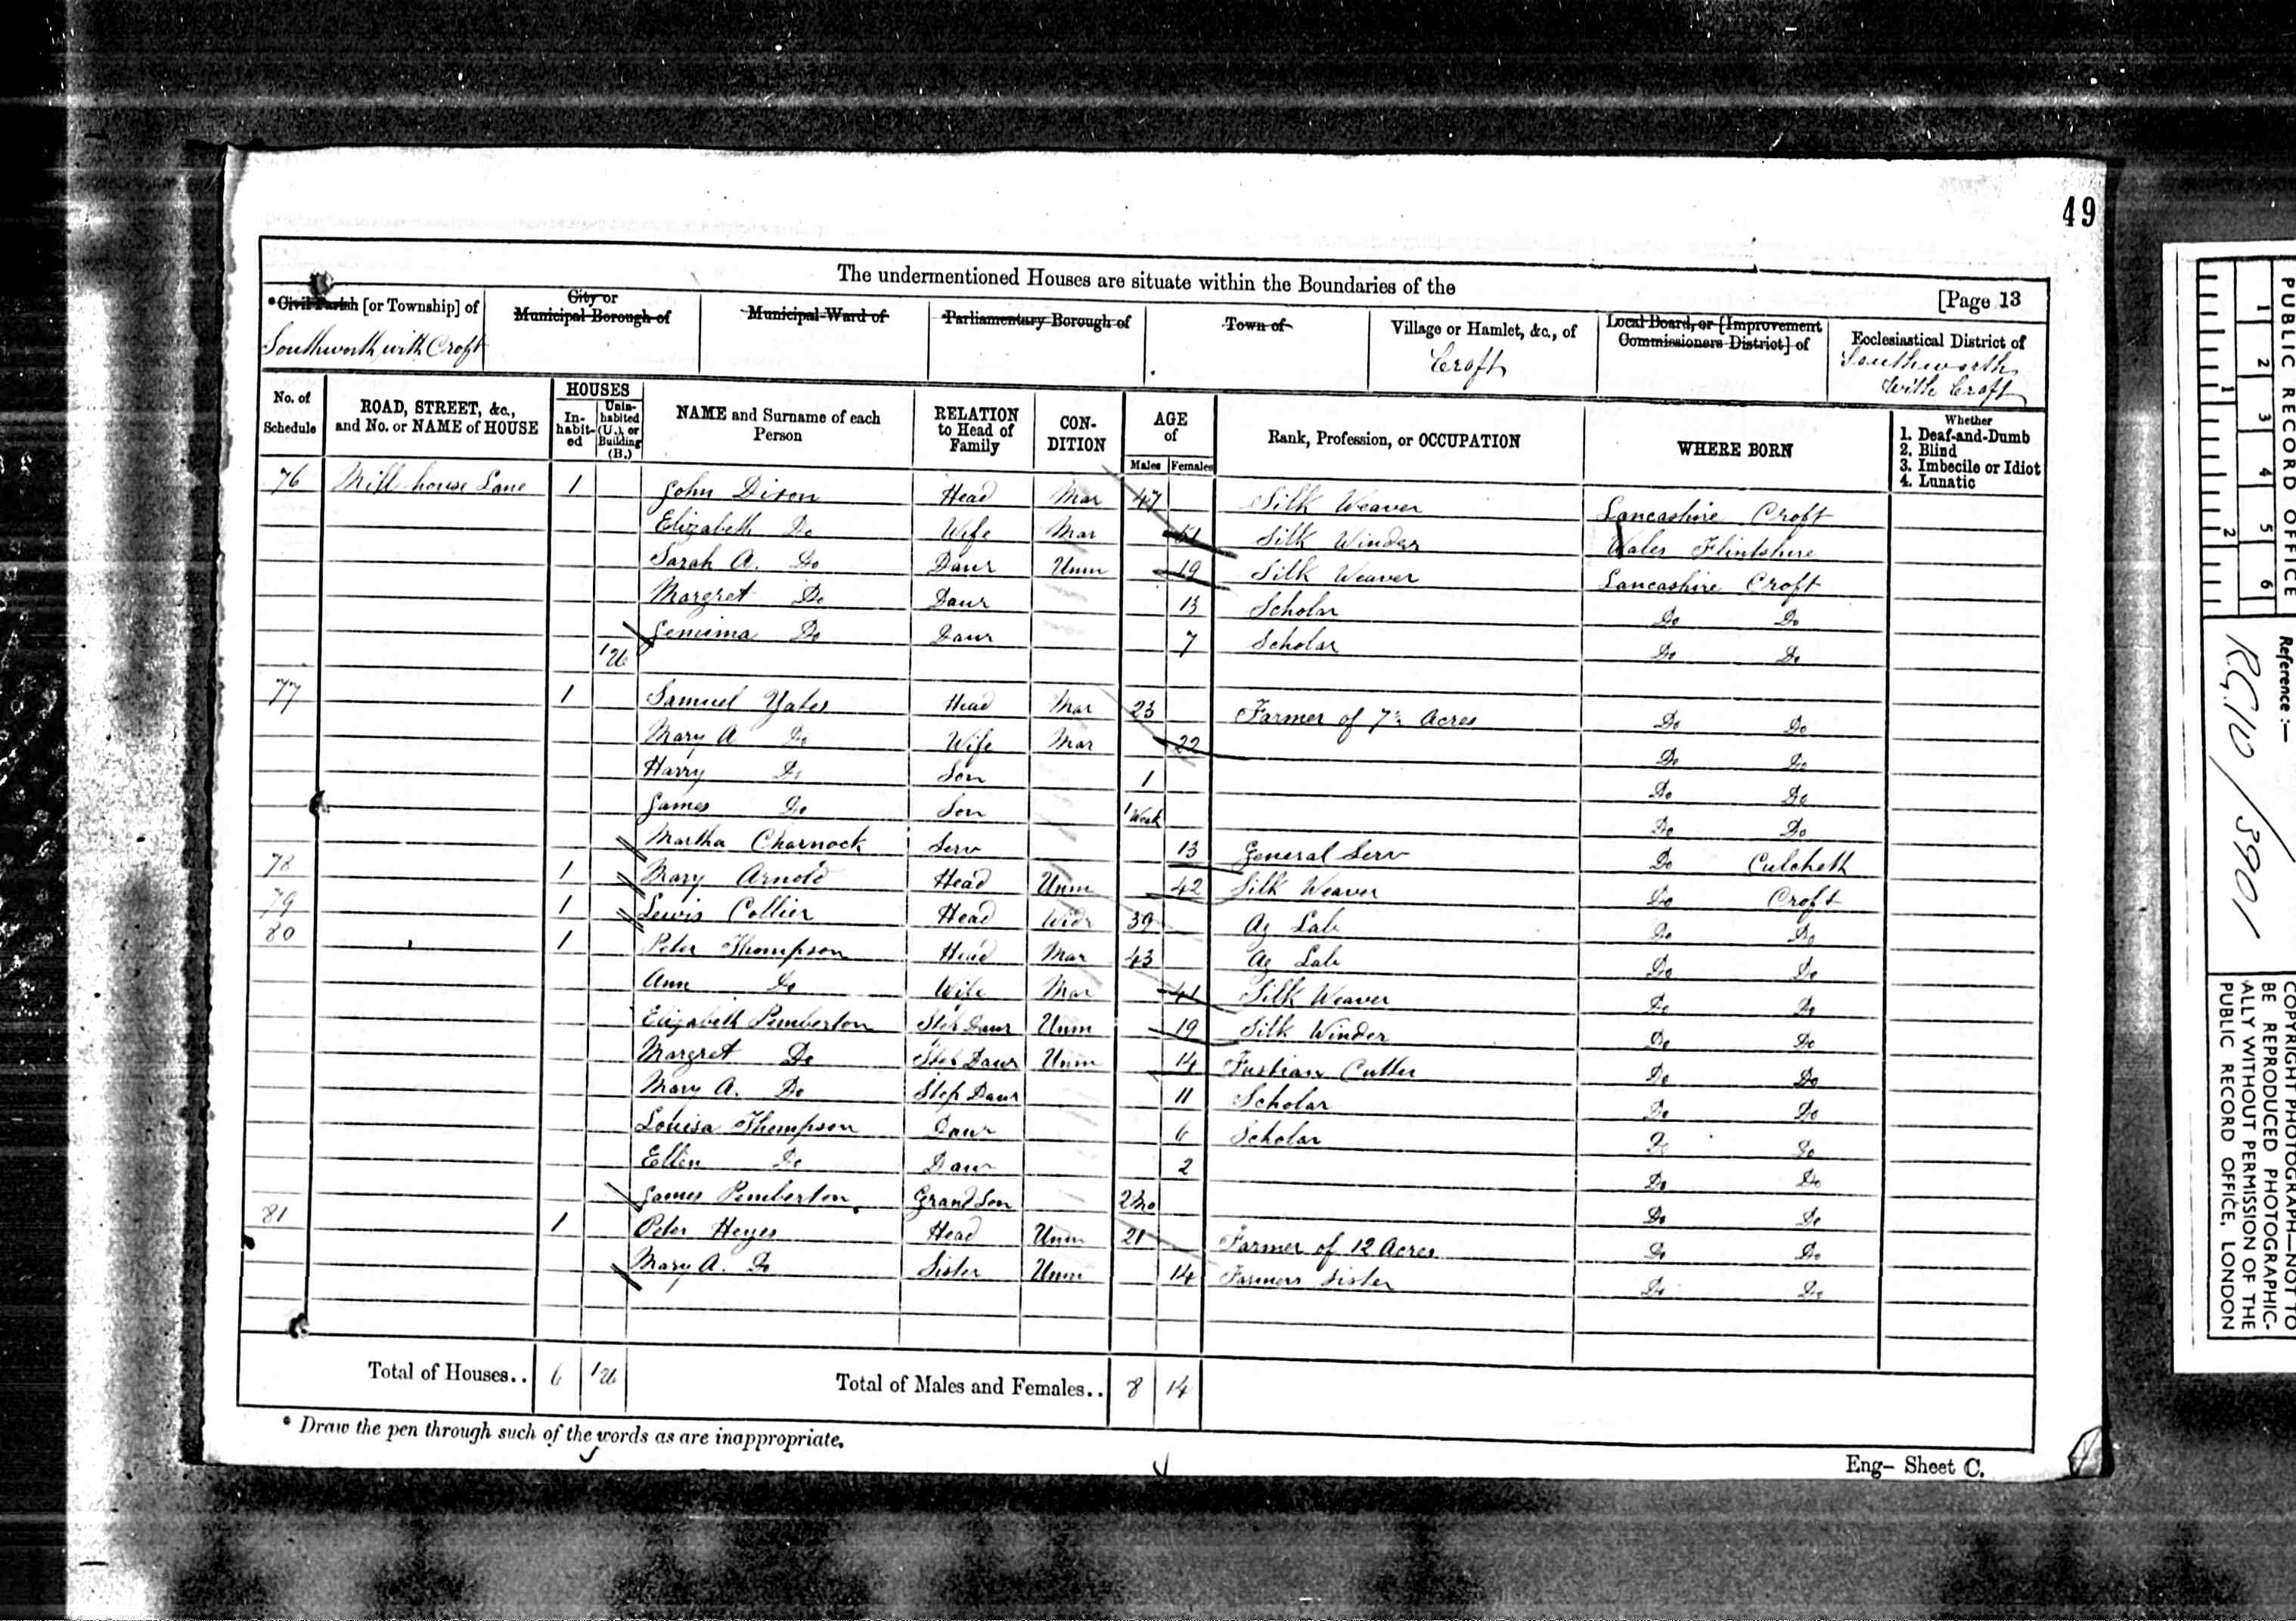 49
The undermentioned Houses are situate within the Boundaries of the
[Page 13
*Civil Parish [or Township] of
City or Municipal Borough of
Municipal Ward of
Parliamentary Borough of
Town of
Village or Hamlet, &c., of
Local Board, or [Improvement Commissioners District] of
Ecclesiastical District of
Southworth with Croft
Croft
Southworth with Croft
No. of Schedule
ROAD, STREET, &c., and No. or NAME of HOUSE
HOUSES
In-habit-ed
Unin-habited (U.), or Building (B.)
NAME and Surname of each Person
RELATION to Head of Family
CON-DITION
AGE of
Males
Females
Rank, Profession, or OCCUPATION
WHERE BORN
Whether
1. Deaf-and-Dumb
2. Blind
3. Imbecile or Idiot
4. Lunatic
76 Mill house Lane 1 John Dixon Head Mar 47 Silk Weaver Lancashire Croft
Elizabeth Do Wife Mar Silk Winder Wales Flintshire
Sarah A. Do Daur Unm 19 Silk Weaver Lancashire Croft
Margret Do Daur 13 Scholar Do Do
Jemima Do Daur 7 Scholar Do Do
1 U
77 1 Samuel Yates Head Mar 23 Farmer of Acres Do Do
Mary A Do Wife Mar 22 Do Do
Harry Do Son 1 Do Do
James Do Son 1 Week Do Do
Martha Charnock Serv 13 General Serv Do Culcheth
78 1 Mary Arnold Head Unm 42 Silk Weaver Do Croft
79 1 Lewis Collier Head Widr 39 Ag Lab Do Do
80 1 Peter Thompson Head Mar 43 Ag Lab Do Do
Ann Do Wife Mar 41 Silk Weaver Do Do
Elizabeth Pemberton Step Daur Unm 19 Silk Winder Do Do
Margret Do Step Daur Unm 14 Fustian Cutter Do Do
Mary A. Do Step Daur 11 Scholar Do Do
Louisa Thompson Daur 6 Scholar Do Do
Ellen Do Daur 2 Do Do
James Pemberton Grand Son 2 Mo Do Do
81 1 Peter Heyes Head Unm 21 Farmer of 12 Acres Do Do
Mary A. Do Sister Unm 14 Farmers Sister Do Do
Total of Houses.. 6 1 U
Total of Males and Females.. 8 14
* Draw the pen through such of the words as are inappropriate.
Eng- Sheet C.
PUBLIC RECORD OFFICE
1 2 3 4 5 6
1 2
Reference :-
RG 10 / 3901
COPYRIGHT PHOTOGRAPH-NOT TO
BE REPRODUCED PHOTOGRAPHIC-
ALLY WITHOUT PERMISSION OF THE
PUBLIC RECORD OFFICE, LONDON